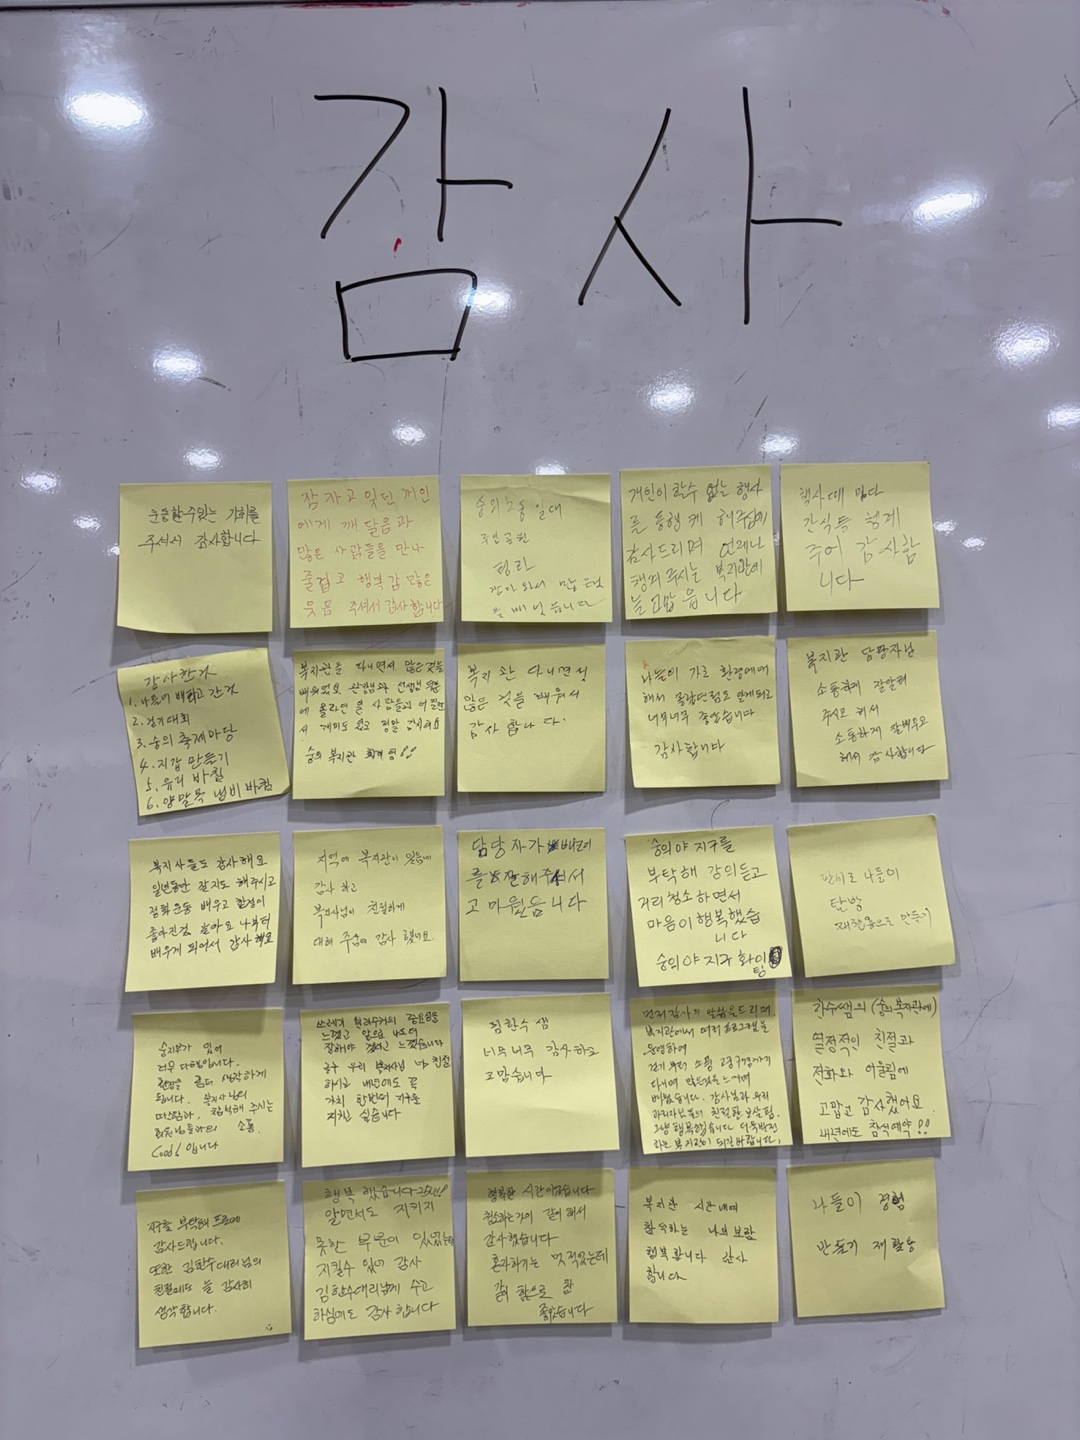 감사
운동할수있는 기회를
주셔서 감사합니다
잠자고 있던 개인
에게 깨달음과
많은 사람들을 만나
즐겁고 행복감 많은
웃음 주셔서 감사합니다
숭의2동 일대
주인공원
같이 와서
개인이 할수 없는 행사
를 동행케 해주심에
감사드리며 언제나
주시는 복지관에
늘 고맙습니다
행사때 마다
간식등 챙겨
주어 감사합
니다
감사한것
1. 나들이 배타고 간것
2. 걷기대회
3. 숭의 축제마당
4. 지갑 만들기
5. 유리 바침
6. 양말목 냄비 바침
복지관을 다니면서 많은것을
배워었고 관장님과 선생님
정말 감사해요
숭의 복지관 화이팅!!
복지관 다니면서
많은 것을 배워서
감사합니다.
나들이 가고 환경에대
해서 몰랐던점도 알게되고
너무너무 좋았습니다
감사합니다
복지관 담당자님
소통하게 잘알려
주시고 해서
소통하게 잘배우고
해서 감사합니다
복지사들도 감사해요
일년동안 잘지도 해주시고
정화운동 배우고 환경이
좋아진것 같아요 나부터
배우게 되어서 감사해요
지역에 복지관이 있음에
감사하고
복지사님이 친절하게
대해 주심에 감사했어요.
담당자가
고마웠읍니다
숭의야 지구를
부탁해 강의듣고
거리청소하면서
마음이행복했습
니다
숭의야 지구 화이
팅
나들이
탄방
재활용으로 만들기
숭의복지관이 있어
너무 다행입니다.
환경을 좀더 생각하게
됩니다. 복지사님의
따스함과, 참석해 주시는
회원님들과의 소통.
Good! 입니다
쓰레기 분리수거의 중요성을
느꼈고 앞으로 나도더
잘해야 겠다고 느꼈습니다
우리 복지사님 너무 친절
하시고 내년에도 꼭
같이 한번더 지구를
지키고 싶습니다
김한수 쌤
너무너무 감사하고
고맙습니다
먼저 감사의 말씀을드리며
복지관에서 여러 프로그램을
운영하여
걷기 부터 소풍
다니며 만드는것을 느끼며
배웠습니다. 강사님과 우리
친절한 보살핌
그냥 행복했습니다 더욱발전
하는 복지관이 되길바랍니다.
한수쌤의 (숭의복지관에)
열정적인 친절과
전화와 이끌림에
고맙고 감사했어요.
내년에도 참석예약!!
지구를 부탁해 프로에
감사드립니다.
또한 김한수대리님의
친절에도 늘 감사히
생각합니다.
행복했습니다
알면서도 지키지
못한 부분이 있었는데
지킬수 있어 감사
김한수대리님께 수고
하심에도 감사합니다
행복한 시간이었습니다
청소하는것이 같이 해서
감사했습니다
혼자하기는 멋적었는데
같이 함으로
좋았습니다
복지관 시간내여
참석하는 나의보람
행복합니다 감사
합니다
나들이 경험
만들기 재활용